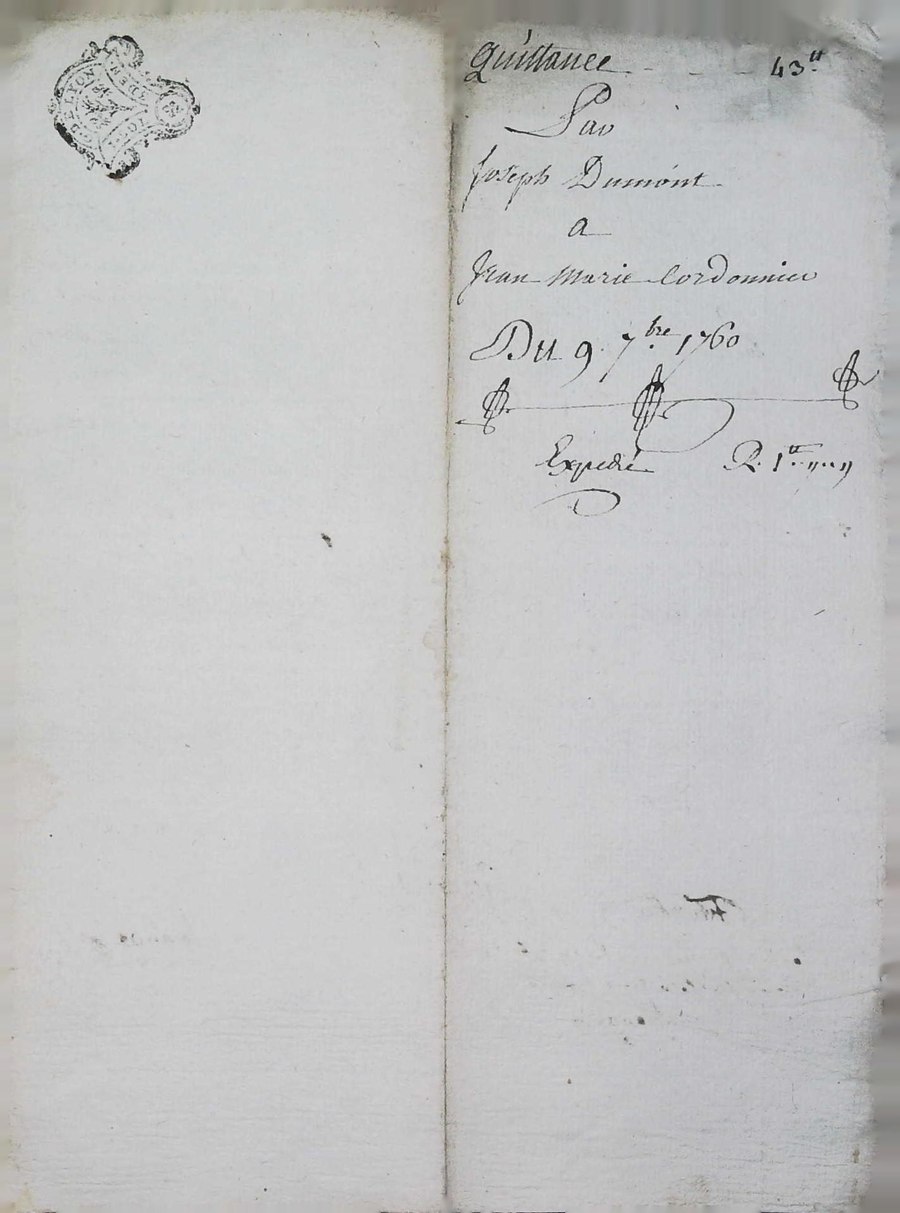 LYON
Quittance 43ᵗᵗ
Par
Joseph Dumont
a
Jean Marie Cordonnier
Du 9 7ᵇʳᵉ 1760
Expedié R. 1ᵗᵗ